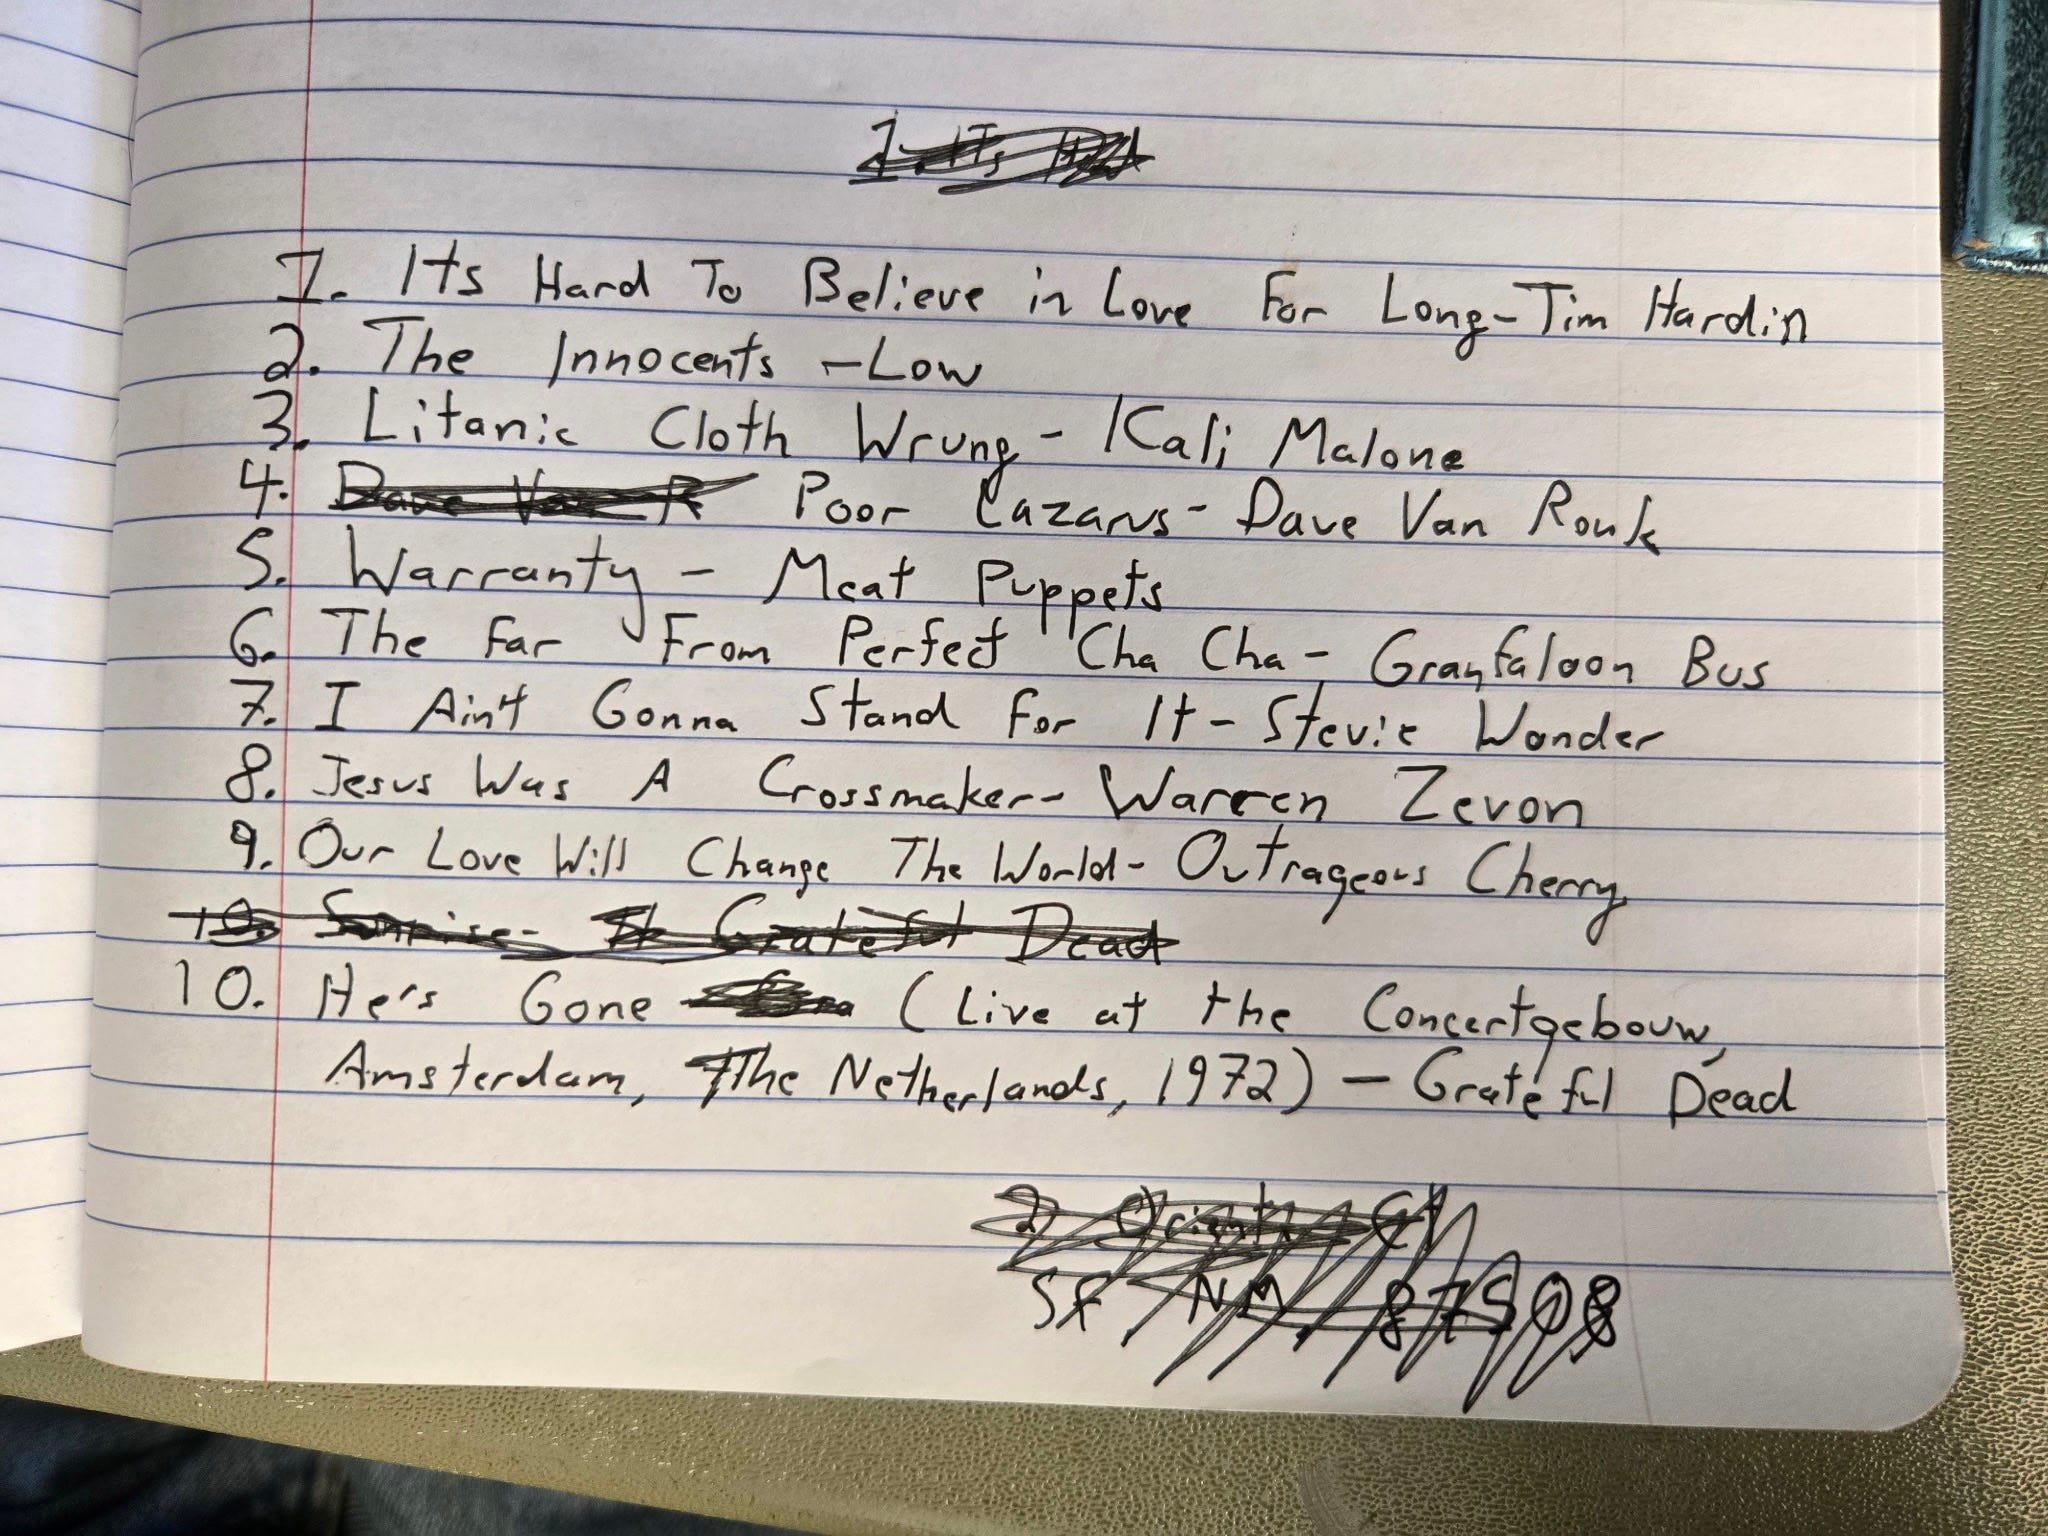 1. Its Hard To Believe in Love For Long-Tim Hardin
2. The Innocents -Low
3. Litanic Cloth Wrung- Kali Malone
4. Poor Lazarus- Dave Van Ronk
5. Warranty - Meat Puppets
6. The Far From Perfect Cha Cha- Granfaloon Bus
7. I Ain't Gonna Stand For It- Stevie Wonder
8. Jesus Was A Crossmaker- Warren Zevon
9. Our Love Will Change The World- Outrageous Cherry
10. Sunrise- Grateful Dead
10. He's Gone (Live at the Concertgebouw,
Amsterdam, The Netherlands, 1972) - Grateful Dead